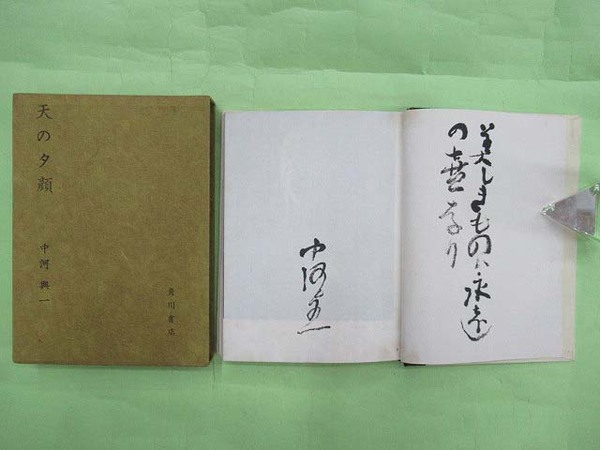 天の夕顔
中河與一
角川書店
美しきものに永遠
の喜あり
中河與一